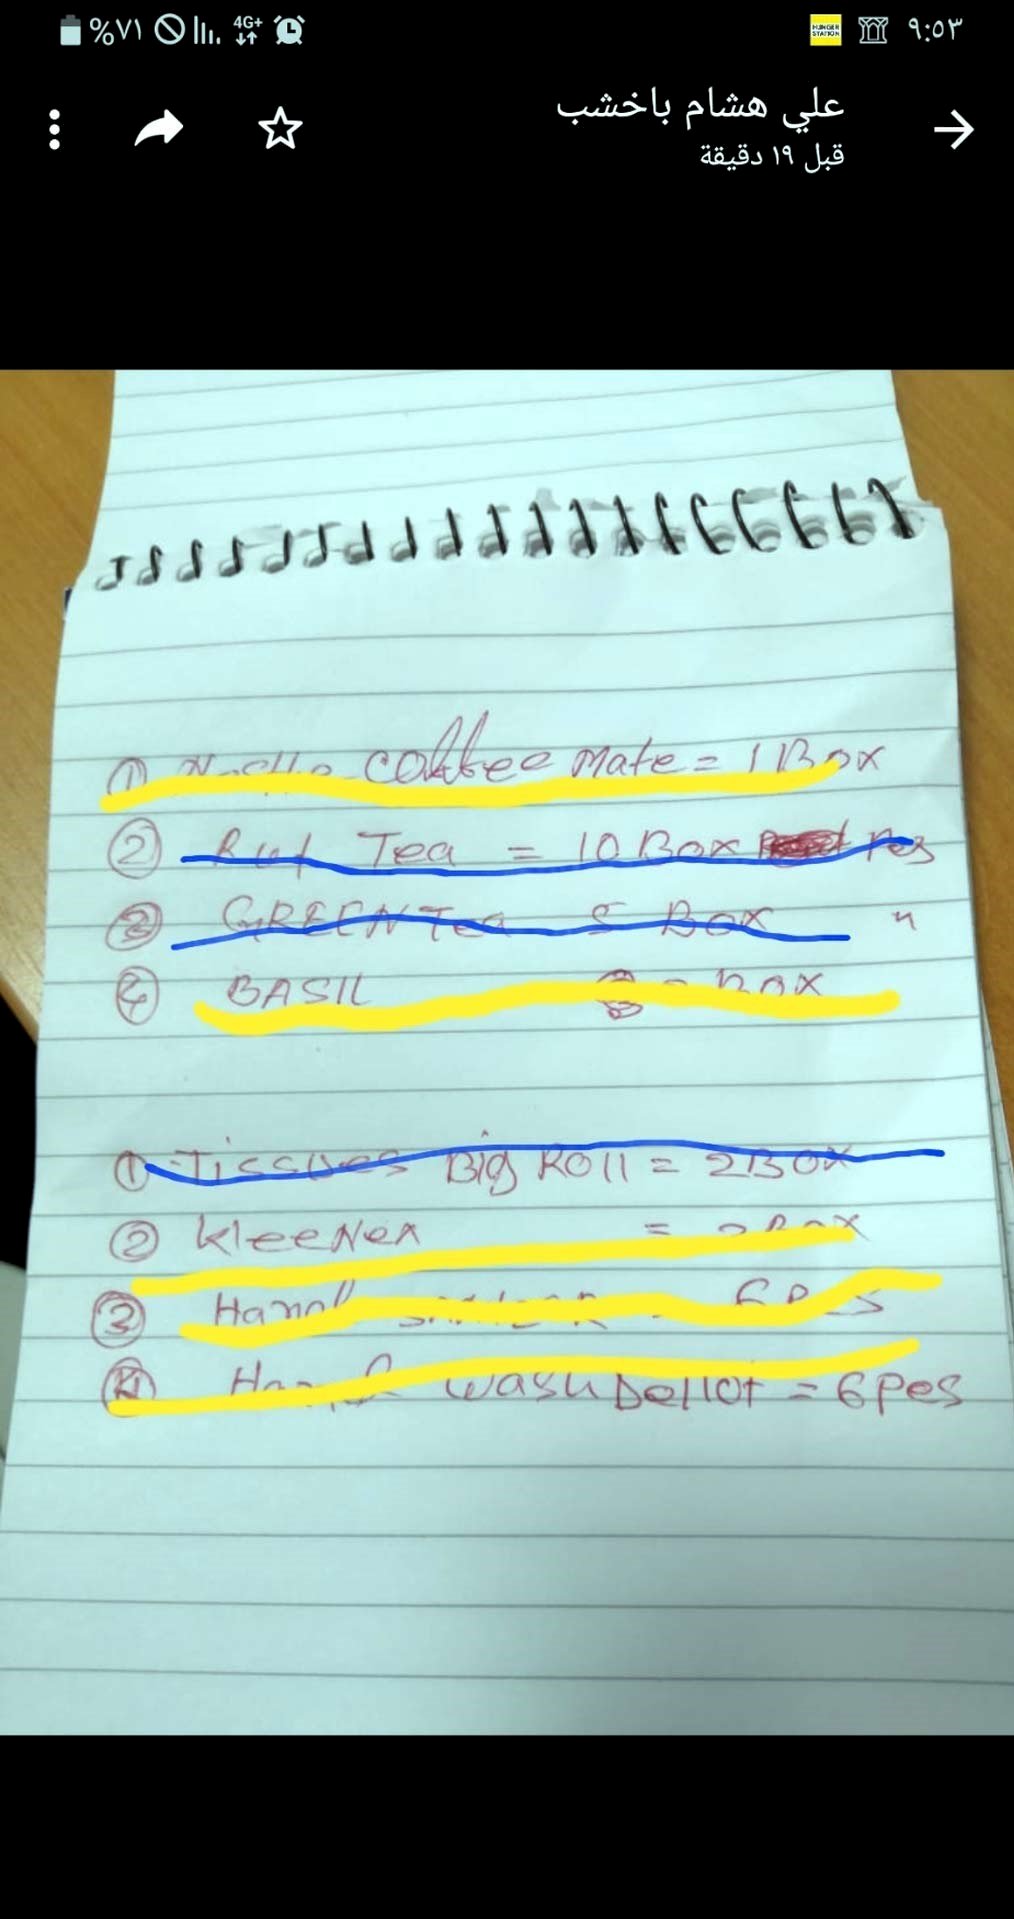 %٧١ 4G+ HUNGER STATION ٩:٥٣
علي هشام باخشب
قبل ١٩ دقيقة
① coffee Mate = 1 Box
② Tea = 10 Box Pes
③ GREEN Tea 5 Box "
④ BASIL = BOX
① Tissues Big Roll = 2 BOX
② kleeNex = Box
③ Hand = 6 Pes
④ Hand wash Dellot = 6 Pes